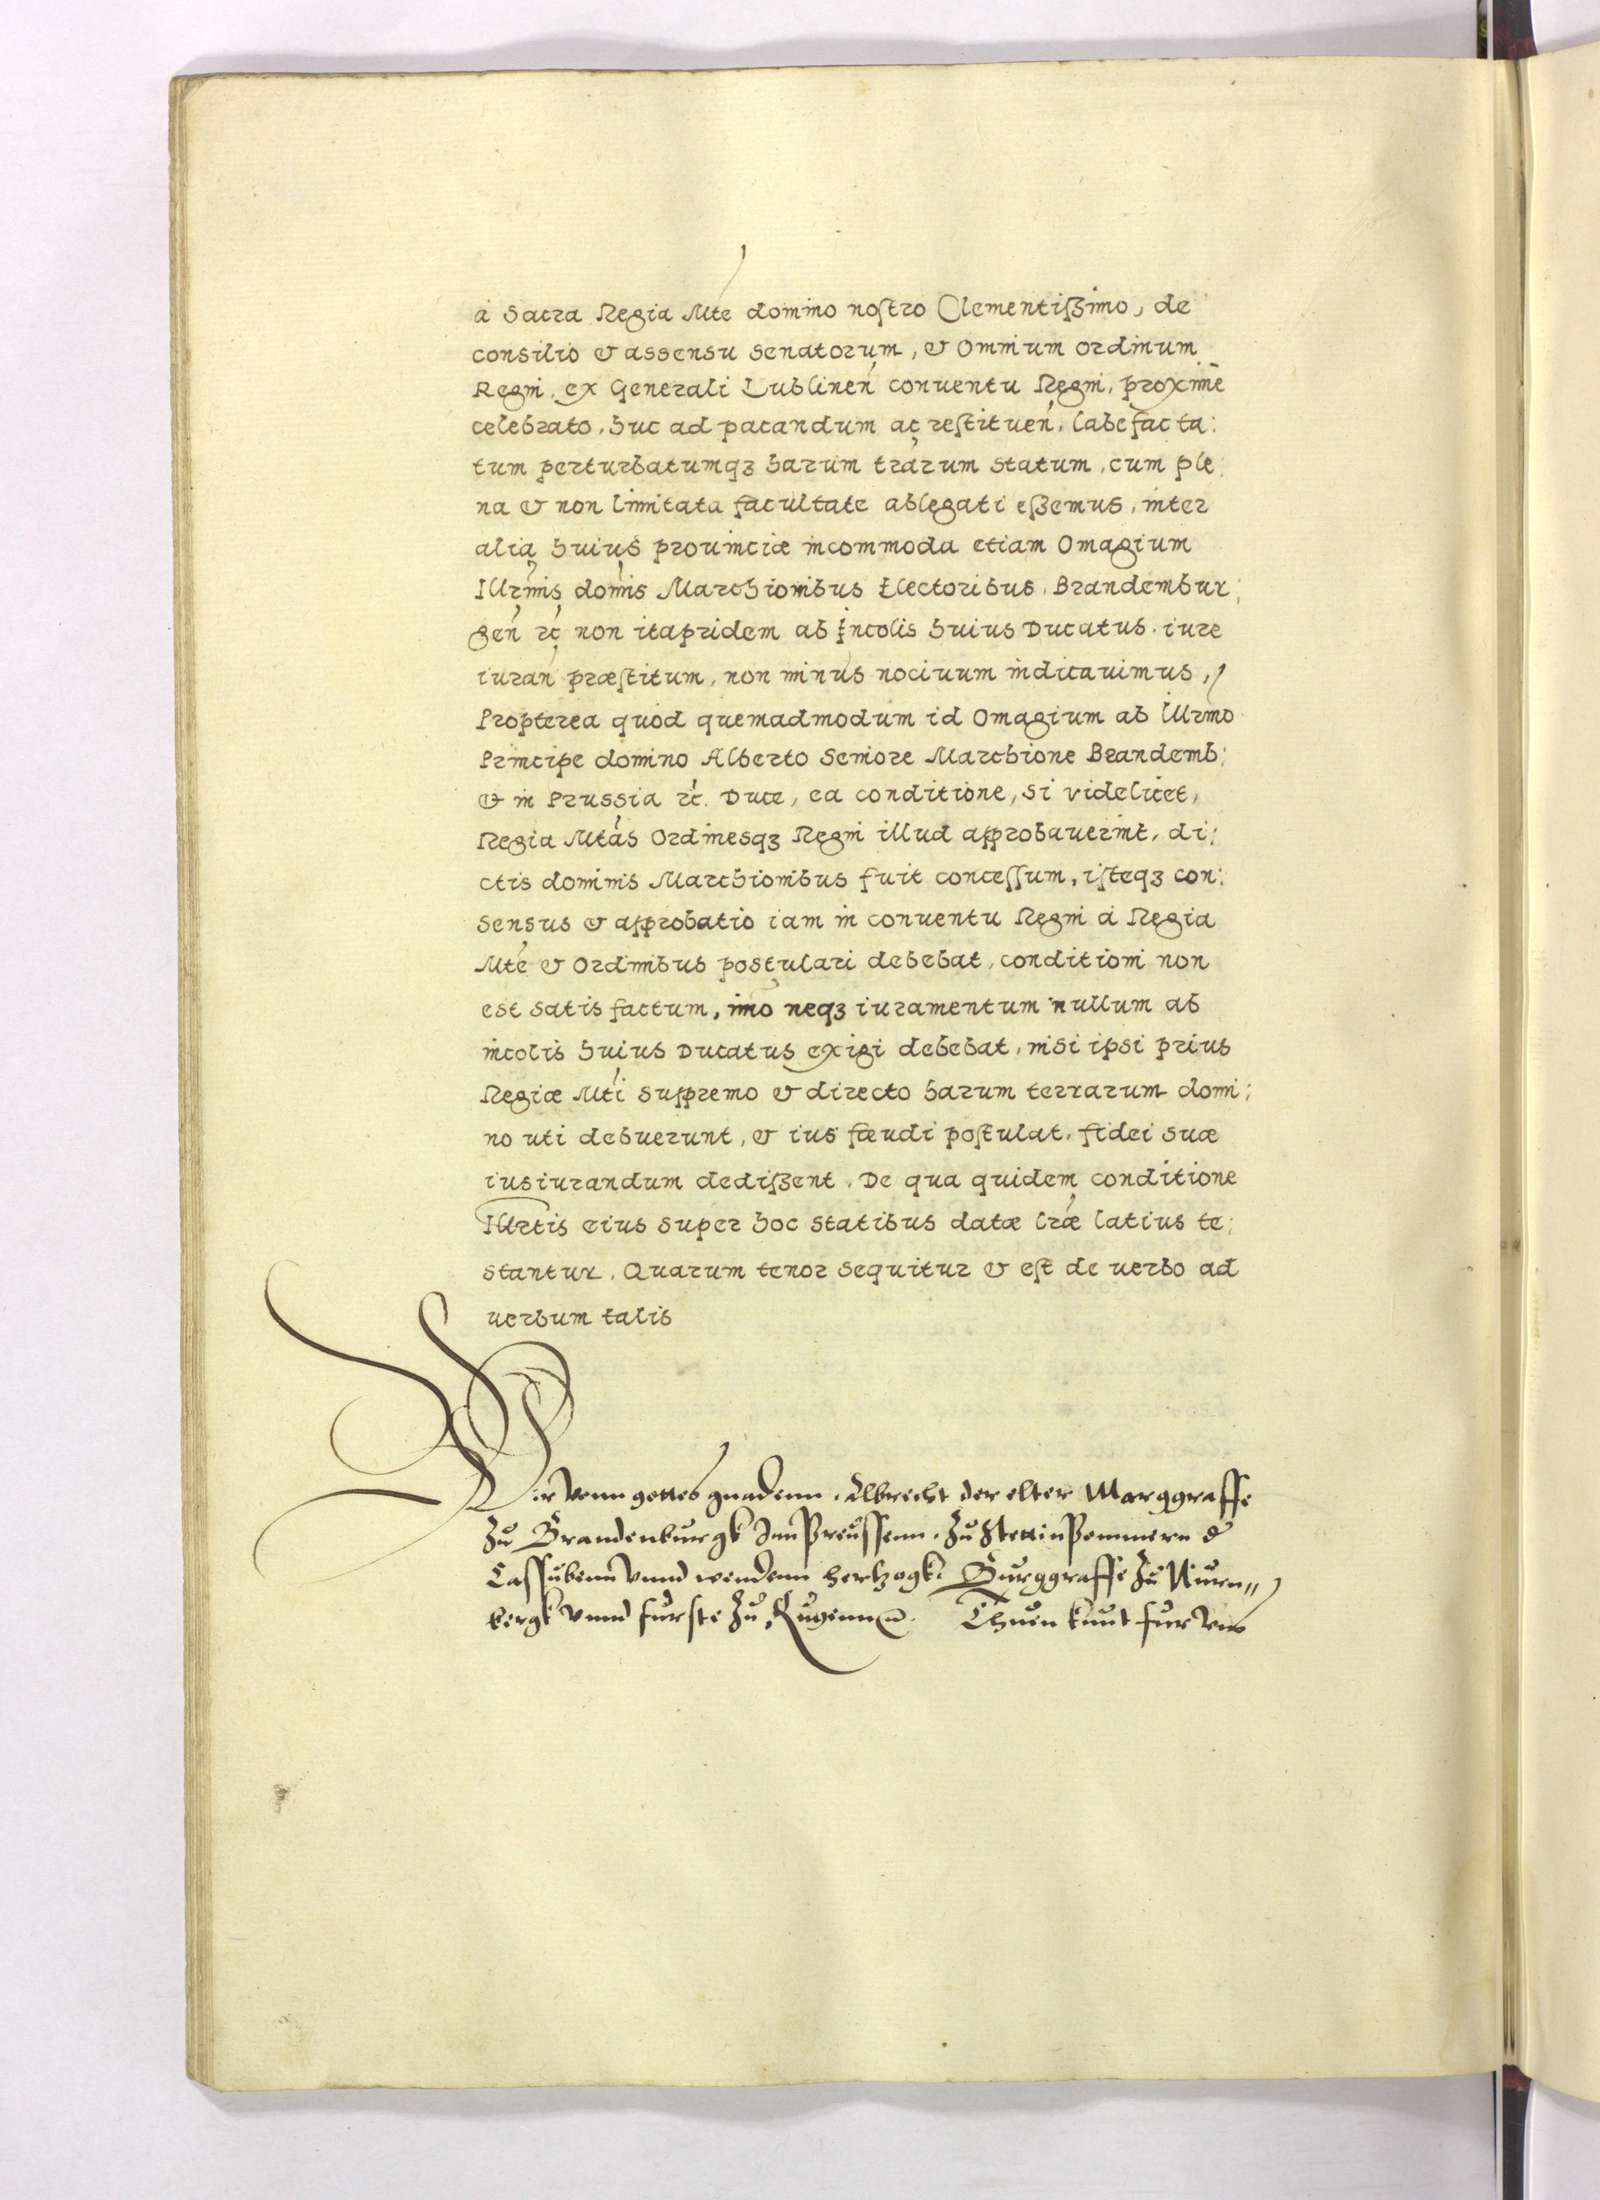 à Sacra Regia Mte domino nostro Clementißimo, de
consilio & assensu senatorum, & Omnium ordinum
Regni, ex Generali Lublinen conuentu Regni, proxime
celebrato, huc ad pacandum ac restituen, labefacta:
tum perturbatumq3 harum trarum statum, cum ple:
na & non limitata facultate ablegati eßemus, inter
alia huius prouinciæ incommoda etiam Omagium
Illrmis domis Marchionibus Electoribus, Brandembur:
gen rc non itapridem ab Incolis huius Ducatus, iure
iuran præstitum, non minus nociuum indicauimus,
Propterea quod quemadmodum id Omagium ab Illrmo
Principe domino Alberto Seniore Marchione Brandemb:
& in Prussia rc. Duce, ea conditione, si videlicet,
Regia Mtas Ordinesq3 Regni illud approbauerint, di:
ctis dominis Marchionibus fuit concessum, isteq3 con:
sensus & approbatio iam in conuentu Regni à Regia
Mte & Ordinibus postulari debebat, conditioni non
est satis factum, imo neq3 iuramentum nullum ab
incolis huius Ducatus exigi debebat, nisi ipsi prius
Regiæ Mti supremo & directo harum terrarum domi:
no uti debuerunt, & ius fœudi postulat, fidei suæ
iusiurandum dedißent. De qua quidem conditione
Illrtis eius super hoc statibus datæ lræ latius te:
stantur. Quarum tenor sequitur & est de uerbo ad
uerbum talis
Wir vonn gottes gnadenn, Albrecht der elter Marggraffe
Zu Brandenburgk Inn Preussenn, Zu Stettin Pommern d
Cassubenn vnnd wendenn hertzogk, Burggraffe Zu Nurn"
bergk vnnd furste Zu Rugenn Thuen kunt fur vns